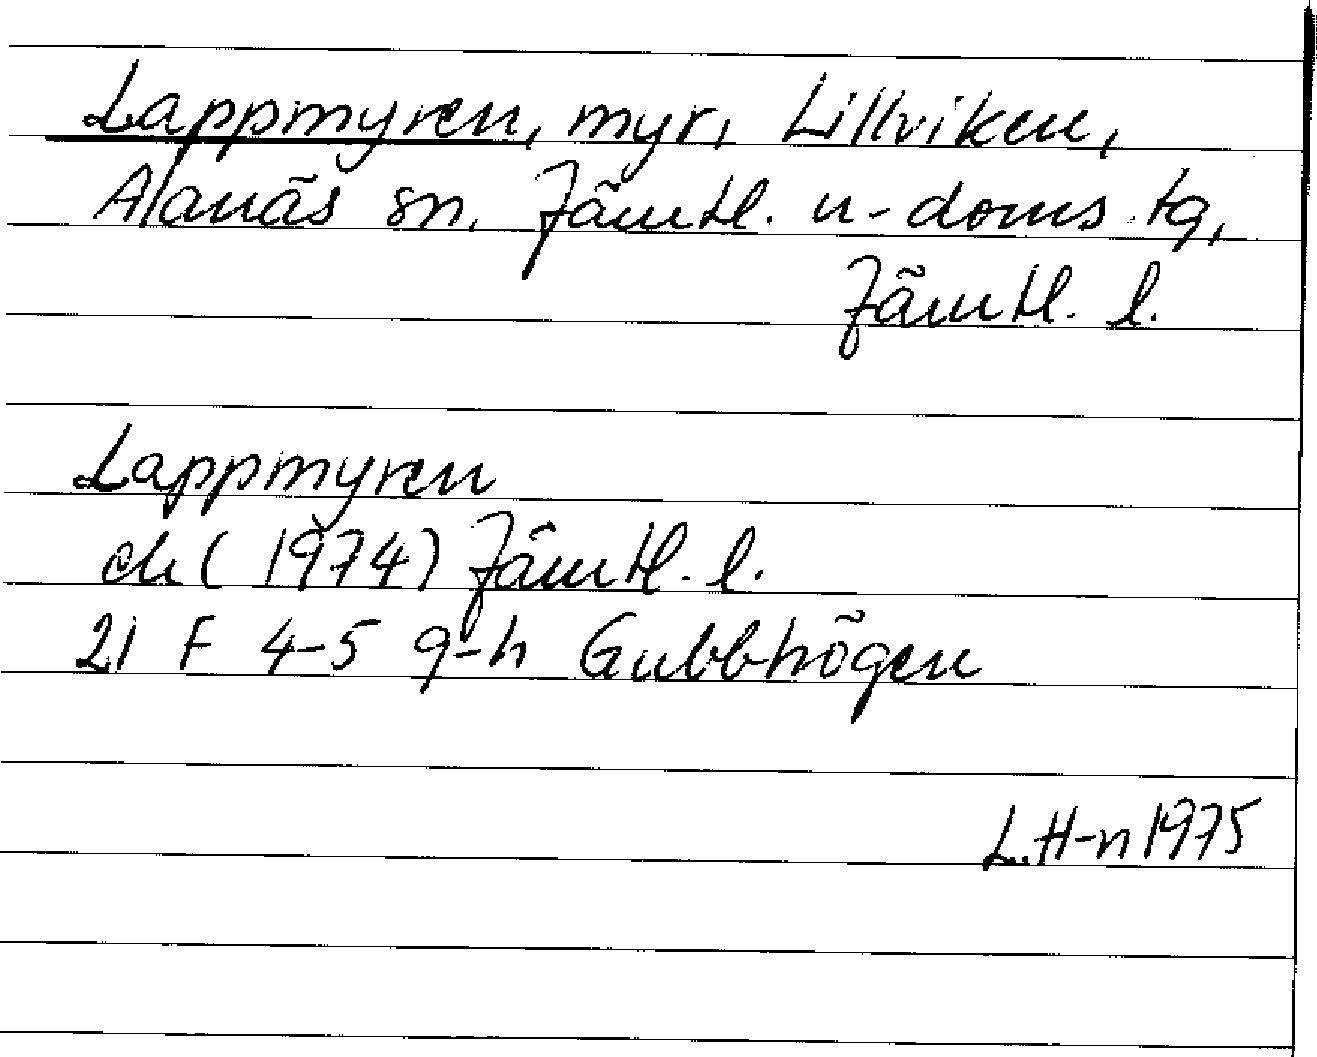 Lappmyren, myr, Lillviken,
Alanäs sn. Jämtl. n-doms tg,
Jämtl. l.
Lappmyren
ek (1974) Jämtl. l.
21 F 4-5 g-h Gubbhögen
L.H-n 1975